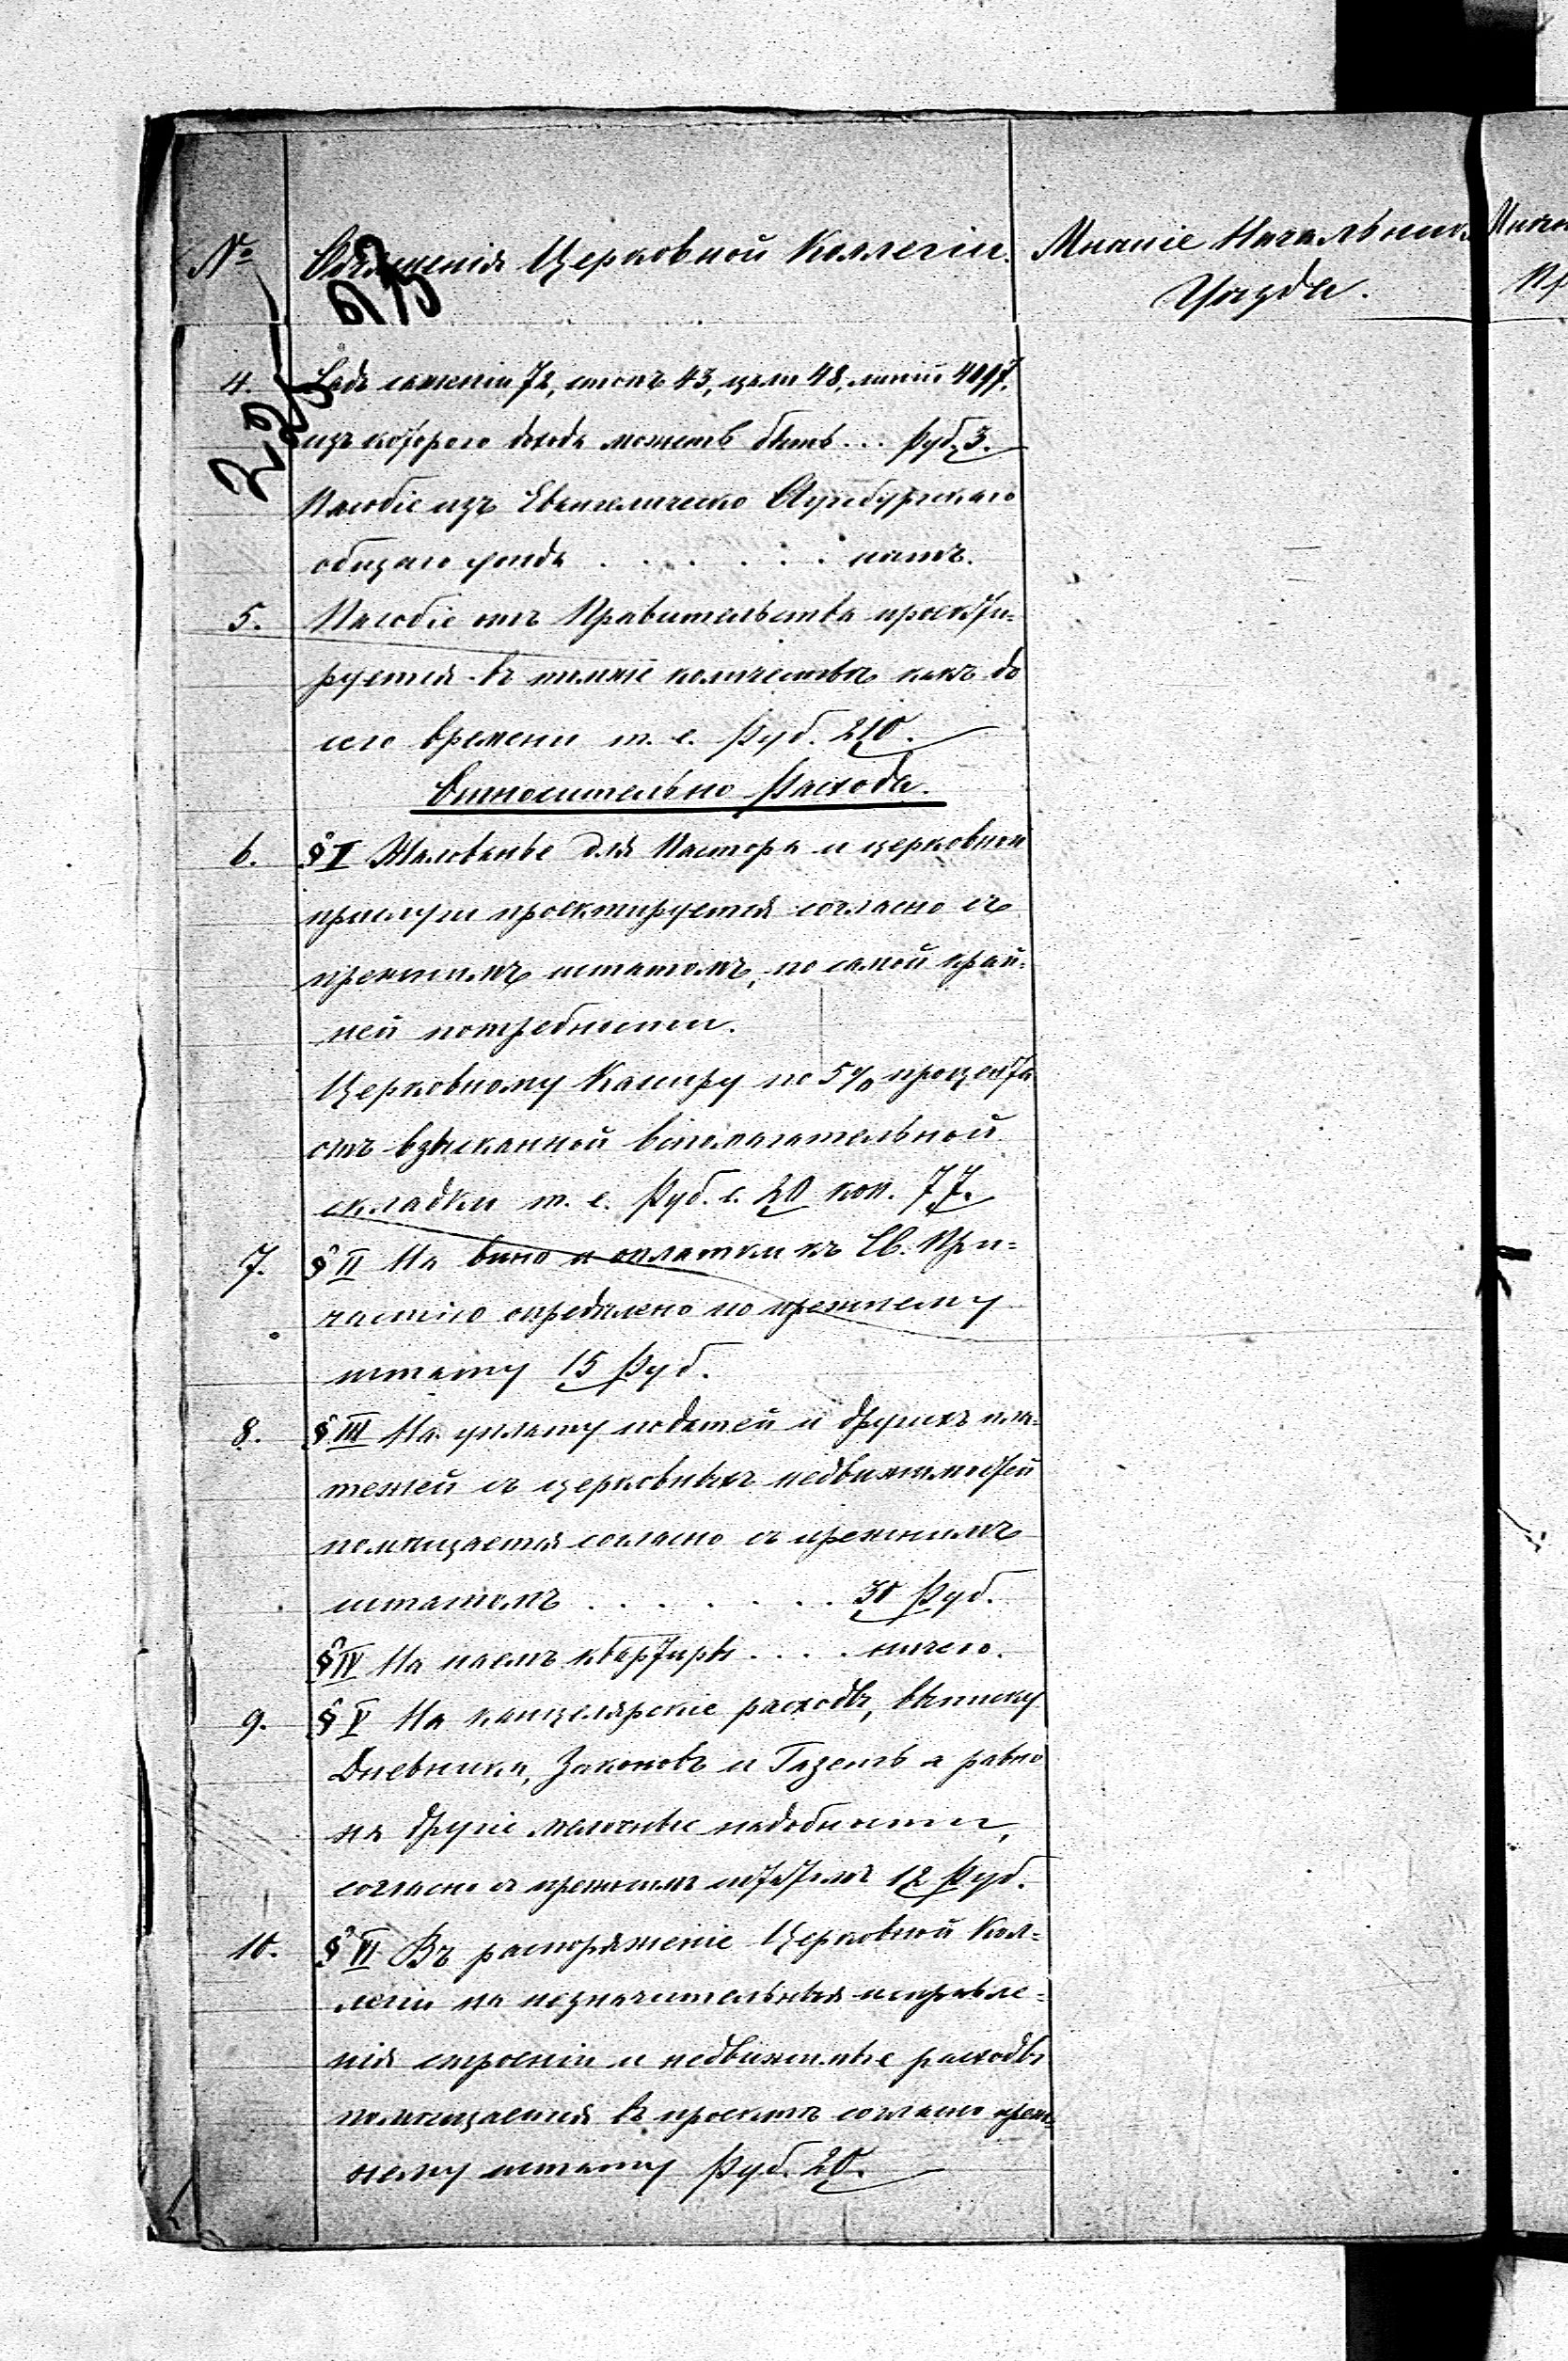 № Объясненія Церковной Коллегіи. Мнѣніе Начальника
Уѣзда.
4. Садъ сажени 72, стопъ 43, цали 48, линіи
изъ котораго доходъ можетъ быть... Руб. 3.
Пособіе изъ Евангелическо Аугсбургскаго
общаго фонда . . . . . . нѣтъ.
5. Пособіе отъ Правительства проекти-
руется въ томже количествѣ какъ до
сего времени т. е. Руб. 210.
Относительно Расхода.
6. § I Жалованье для Пастора и церковной
прислуги проектируется согласно съ
прежнимъ штатомъ, по самой край-
ней потребности.
Церковному Касиру по 5% процента
отъ взысканной вспомагательной
складки т. е. Руб. с. 20 коп. 77.
7. § II На вино и оплатки къ Св. При-
частію опредѣлено по прежнему
штату 15 Руб.
8. § III На уплату податей и другихъ пла-
тежей съ церковныхъ недвижимостей
помѣщается согласно съ прежнимъ
штатомъ . . . . . . . 30 Руб.
§ IV На наемъ квартиры . . . . ничего.
9. § V На канцелярскіе расходы, выписку
Дневника, Законовъ и Газетъ а равно
на другіе мелочные надобности,
согласно съ прежнимъ штатомъ 12 Руб.
10. § VI Въ распоряженіе Церковной Кол-
легіи на незначительныя исправле-
нія строеніи и недвижимые расходы
помѣщается въ проектѣ согласно преж-
нему штату Руб. 20.